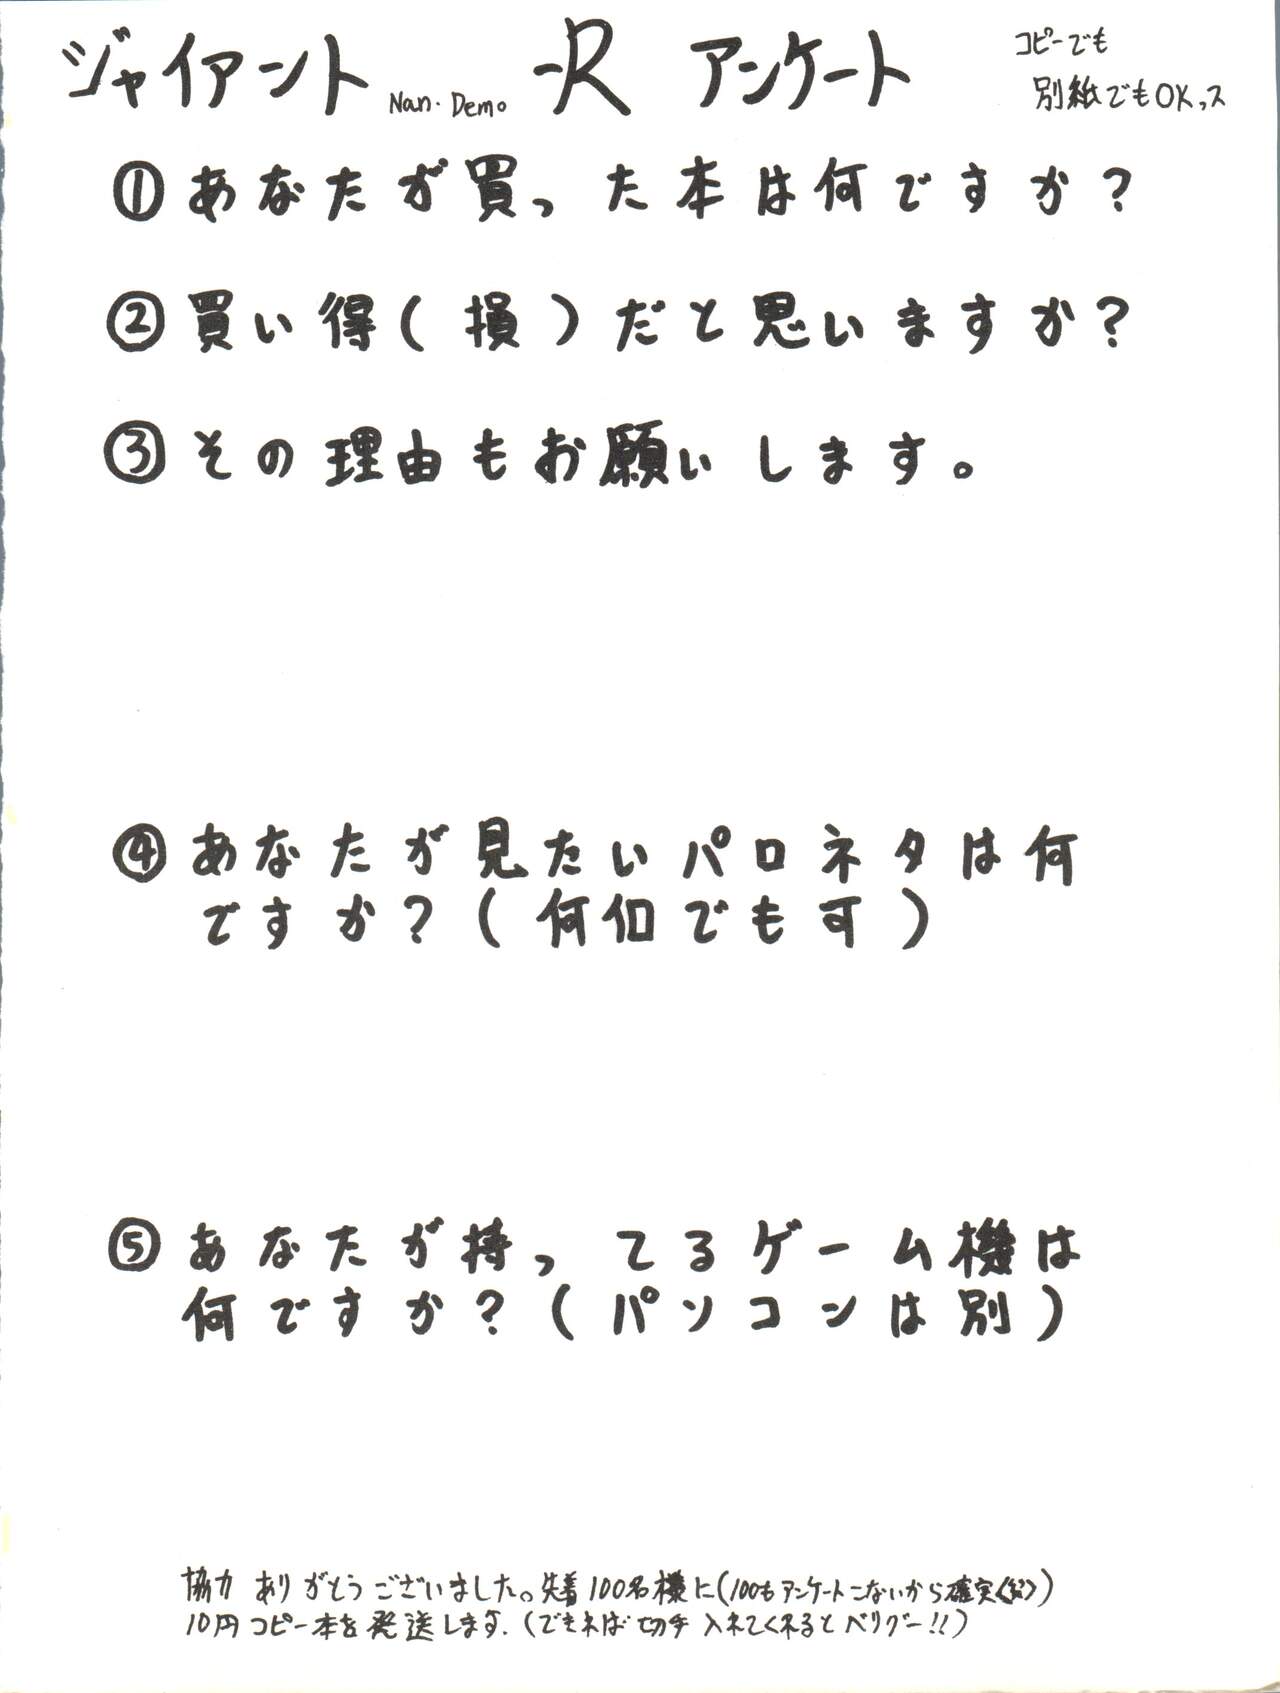 ジャイアント Nan・Demo -R アンケート
コピーでも
別紙でもOKッス
① あなたが買った本は何ですか?
② 買い得(損)だと思いますか?
③ その理由もお願いします。
④ あなたが見たいパロネタは何
ですか?(何個でも可)
⑤ あなたが持ってるゲーム機は
何ですか?(パソコンは別)
協力ありがとうございました。先着100名様に(100もアンケートこないから確実)
10円コピー本を発送します.(できれば切手入れてくれるとベリグー!!)